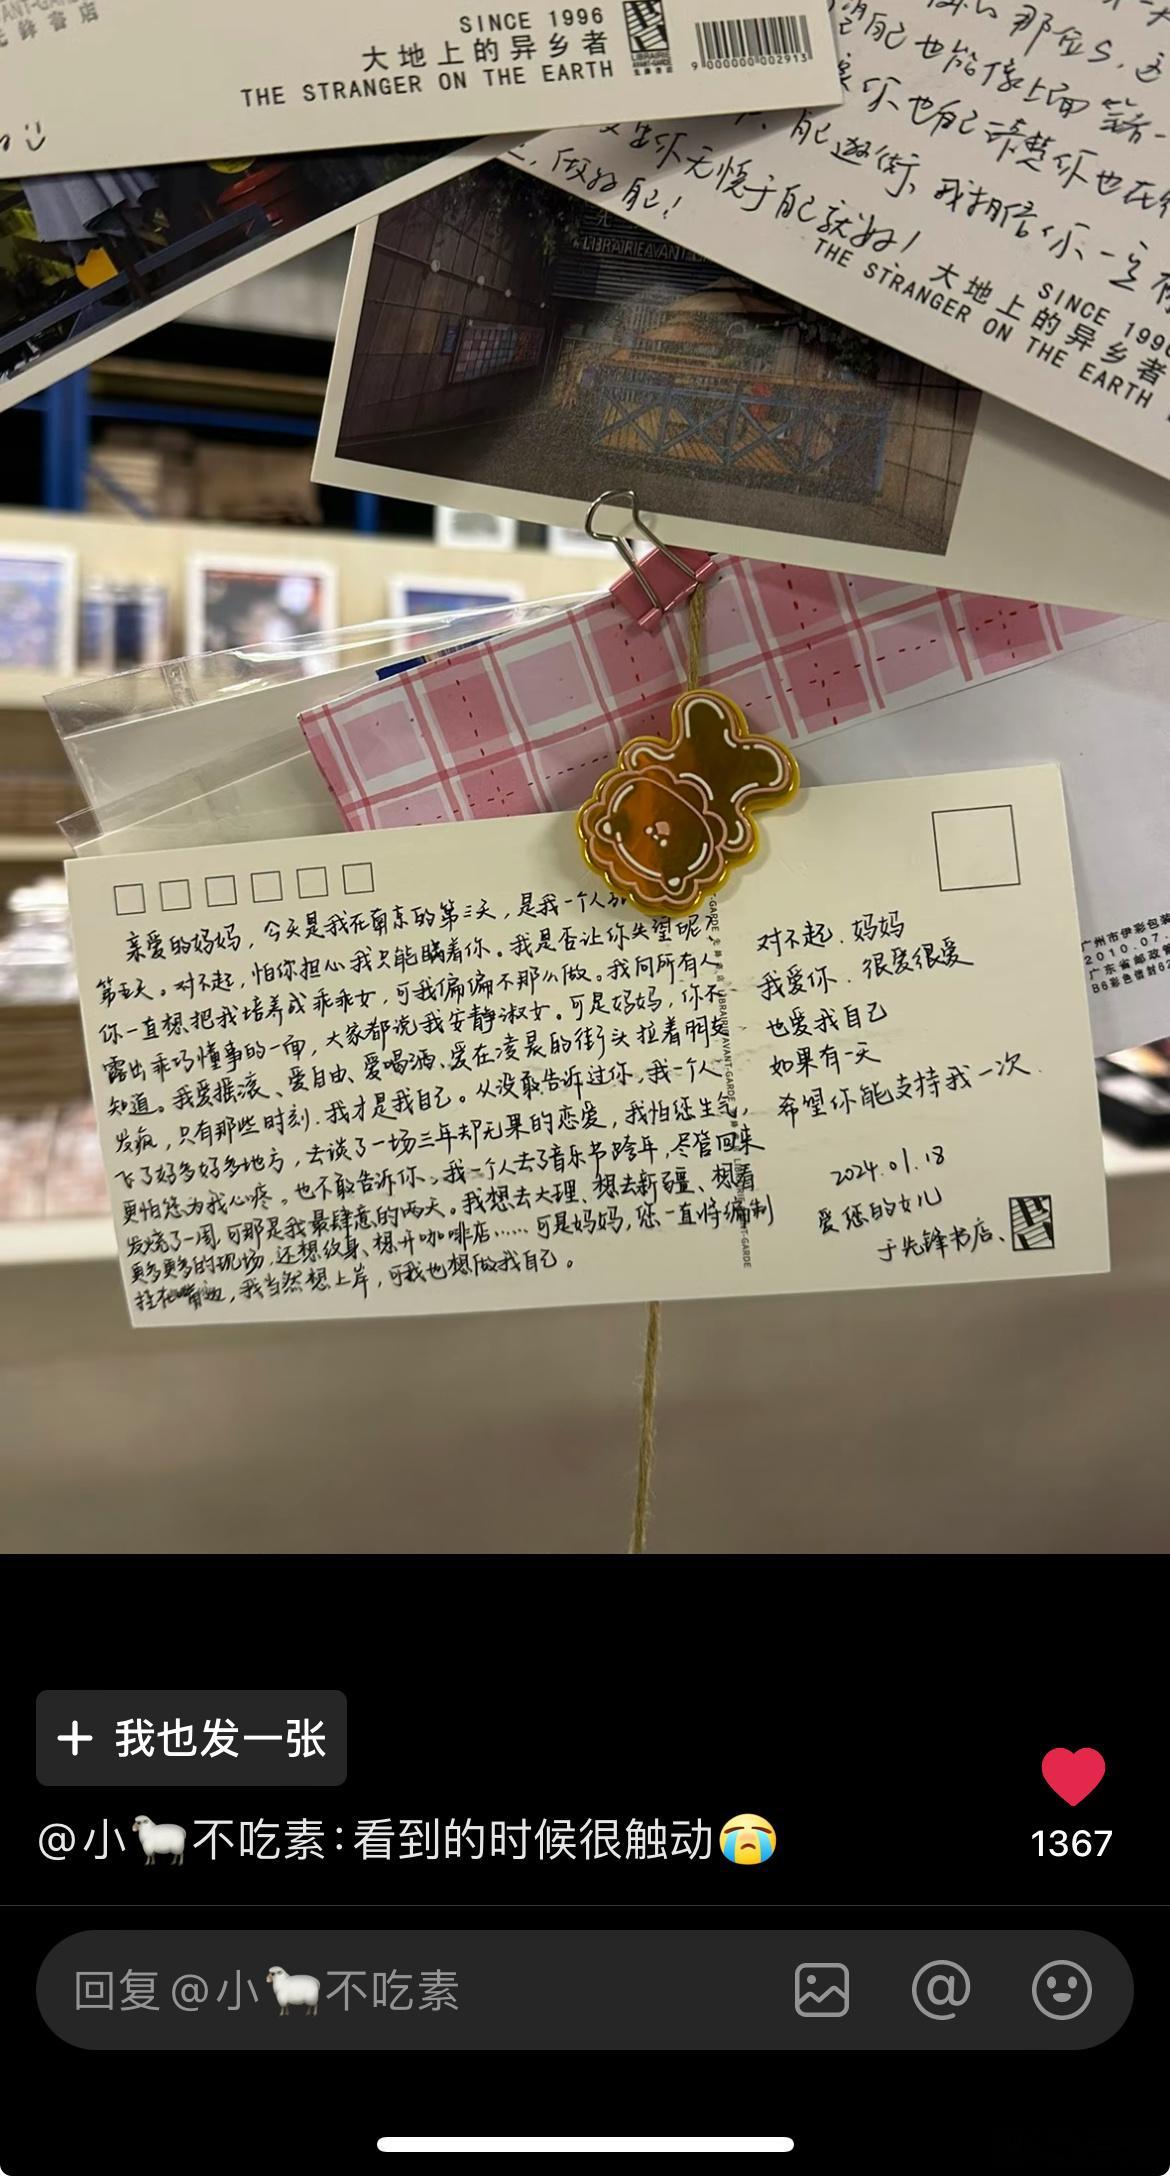 SINCE 1996
大地上的异乡者
THE STRANGER ON THE EARTH
9 000000 002913
那么
自己也能像上面
你也自己
自己
你无愧于自己就好！
我相信你一定
做好自己！
SINCE 1996
大地上的异乡者
THE STRANGER ON THE EARTH
LIBRAIRIE AVANT
亲爱的妈妈，今天是我在南京的第三天，是我一个人
第五天。对不起，怕你担心我只能瞒着你。我是否让你失望呢？
你一直想把我培养成乖乖女，可我偏偏不那么做。我向所有人
露出乖巧懂事的一面，大家都说我安静淑女。可是妈妈，你不
知道。我爱摇滚、爱自由、爱喝酒、爱在凌晨的街头拉着朋友
发疯，只有那些时刻，我才是我自己。从没敢告诉过你，我一个人
飞了好多好多地方，去谈了一场三年却无果的恋爱，我怕您生气，
更怕您为我心疼。也不敢告诉你，我一个人去了音乐节跨年，尽管回来
发烧了一周，可那是我最肆意的两天。我想去大理、想去新疆、想看
更多更多的现场，还想纹身、想开咖啡店……可是妈妈，您一直将编制
挂在嘴边，我当然想上岸，可我也想做我自己。
对不起，妈妈
我爱你，很爱很爱
也爱我自己
如果有一天
希望你能支持我一次
2024.01.18
爱您的女儿
于先锋书店、
广州市伊彩包装
2010.07.
广东省邮政管
B6彩色信封62
我也发一张
@小🐑不吃素：看到的时候很触动😭
1367
回复 @小🐑不吃素